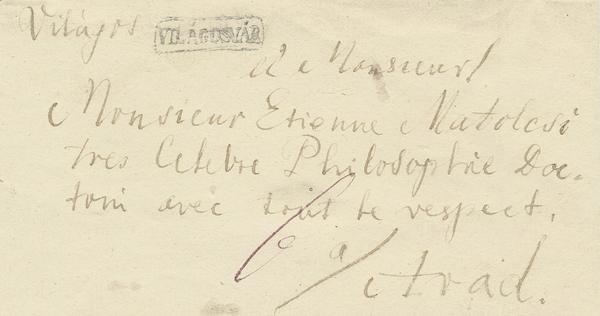 Világos VILÁGOSVÁR
A Monsieur
Monsieur Etienne Matolcsi
tres Celebre Philosophie Doc-
tori avec tout le respect.
6 a/ Arad.